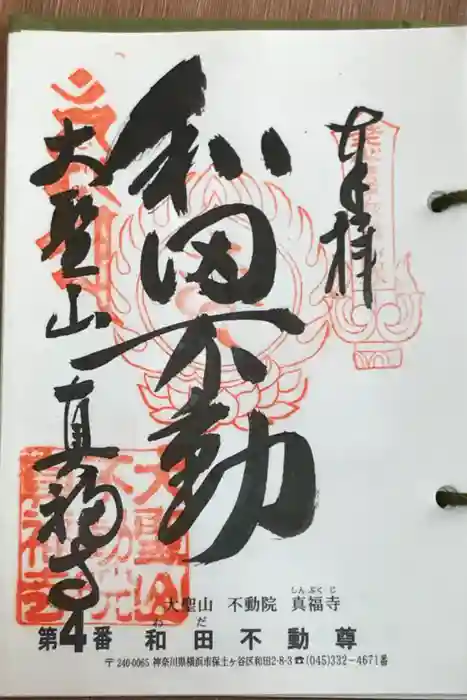 奉拝
和田不動
大聖山 真福寺
大聖山 不動院 真福寺
しんぷくじ
わだ
第4番 和田不動尊
〒240-0065 神奈川県横浜市保土ヶ谷区和田2-8-3 ☎(045)332-4671番